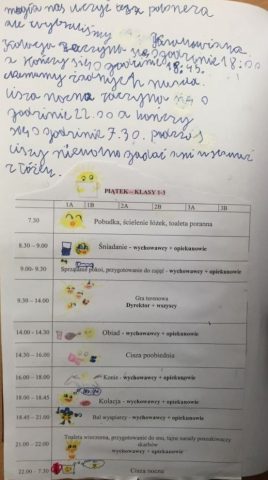 mogła nas uczyć
ale wybraliśmy
kolacja zaczyna się o godzinie 18:00
a kończy się o godzinie 18:45.
Cisza nocna zaczyna się o
godzinie 22.00 a kończy
się o godzinie 7.30. podczas
ciszy nie wolno gadać ani wstawać
z łóżek.
PIĄTEK – KLASY 1-3
1A 1B 2A 2B 3A 3B
7.30 Pobudka, ścielenie łóżek, toaleta poranna
8.30 – 9.00 Śniadanie - wychowawcy + opiekunowie
9.00- 9.30 Sprzątanie pokoi, przygotowanie do zajęć - wychowawcy + opiekunowie
9.30 – 14.00 Gra terenowa
Dyrektor + wszyscy
14.00 – 14.30 Obiad - wychowawcy + opiekunowie
14.30 – 16.00 Cisza poobiednia
16.00 – 18.00 Konie - wychowawcy + opiekunowie
18.00 – 18.45 Kolacja - wychowawcy + opiekunowie
18.45 – 21.00 Bal wyspiarzy - wychowawcy + opiekunowie
21.00 – 22.00 Toaleta wieczorna, przygotowanie do snu, tajne narady poszukiwaczy
skarbów
wychowawcy + opiekunowie
22.00 – 7.30 Cisza nocna